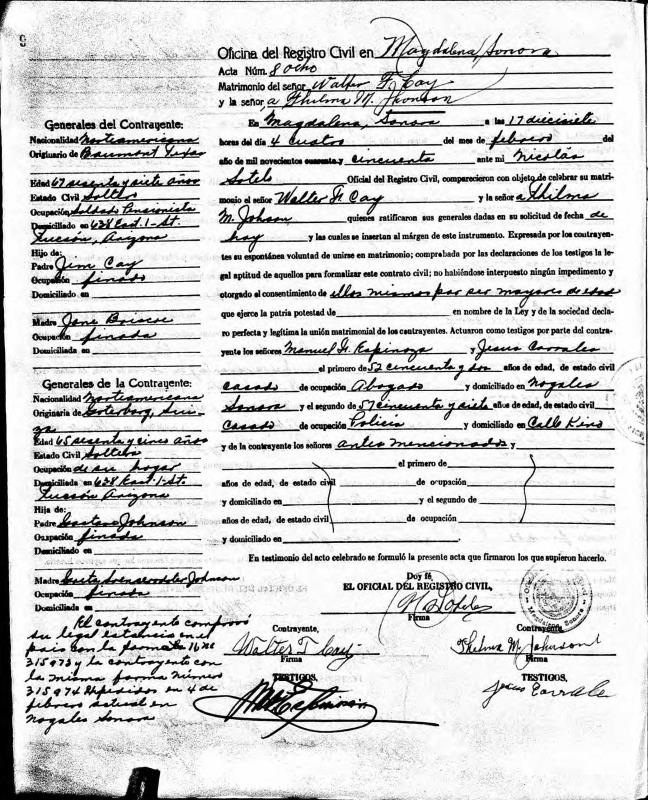 Oficina del Registro Civil en Magdalena, Sonora
Acta Núm. 8 ocho
Matrimonio del señor Walter F. Cay
y la señor a Thilma M. Jhonson
En Magdalena, Sonora a las 17 diecisiete
horas del día 4 cuatro del mes de febrero del
año de mil novecientos cuarenta y cincuenta ante mi Nicolás
Sotelo Oficial del Registro Civil, comparecieron con objeto de celebrar su matri-
monio el señor Walter F. Cay y la señor a Thilma
M. Johson quienes ratificaron sus generales dadas en su solicitud de fecha de
hoy y las cuales se insertan al márgen de este instrumento. Expresada por los contrayen-
tes su espontánea voluntad de unirse en matrimonio; comprobada por las declaraciones de los testigos la le-
gal aptitud de aquellos para formalizar este contrato civil; no habiéndose interpuesto ningún impedimento y
otorgado el consentimiento de ellos mismos por ser mayores de edad
que ejerce la patria potestad de en nombre de la Ley y de la sociedad decla-
ro perfecta y legítima la unión matrimonial de los contrayentes. Actuaron como testigos por parte del contra-
yente los señores Manuel F. Espinoza y Jesus Corrales
el primero de 52 cincuenta y dos años de edad, de estado civil
casado de ocupación Abogado y domiciliado en Nogales
Sonora y el segundo de 57 cincuenta y siete años de edad, de estado civil
casado de ocupación Policia y domiciliado en Calle Kino
y de la contrayente los señores antes mencionados y
el primero de
años de edad, de estado civil de ocupación
y domiciliado en y el segundo de
años de edad, de estado civil de ocupación
y domiciliado en
En testimonio del acto celebrado se formuló la presente acta que firmaron los que supieron hacerlo.
Doy fé,
EL OFICIAL DEL REGISTRO CIVIL,
Contrayente, Contrayente,
Walter F. Cay Thelma M. Johnson
Firma Firma
TESTIGOS, TESTIGOS,
Jesus Corrale
Generales del Contrayente:
Nacionalidad Norteamericana
Originario de Baumont Texas
Edad 67 sesenta y siete años
Estado Civil Soltero
Ocupación Soldado Pensionista
Domiciliado en 638 East. 1-St.
Tucson, Arizona
Hijo de:
Padre Jim Cay
Ocupación finado
Domiciliado en
Madre Jane Briscoe
Ocupación finada
Domiciliada en
Generales de la Contrayente:
Nacionalidad Norteamericana
Originaria de Goterborg, Sui-
za
Edad 65 sesenta y cinco años
Estado Civil Soltera
Ocupación de su hogar
Domiciliada en 638 East. 1-St.
Tucson Arizona
Hija de:
Padre Gustavo Johnson
Ocupación finado
Domiciliado en
Madre Johnson
Ocupación finada
Domiciliada en
El contrayente comprovó
su legal estancia en el
pais con la forma
315973 y la contrayente con
la misma forma número
315974 expedidas en 4 de
febrero actual en
Nogales Sonora